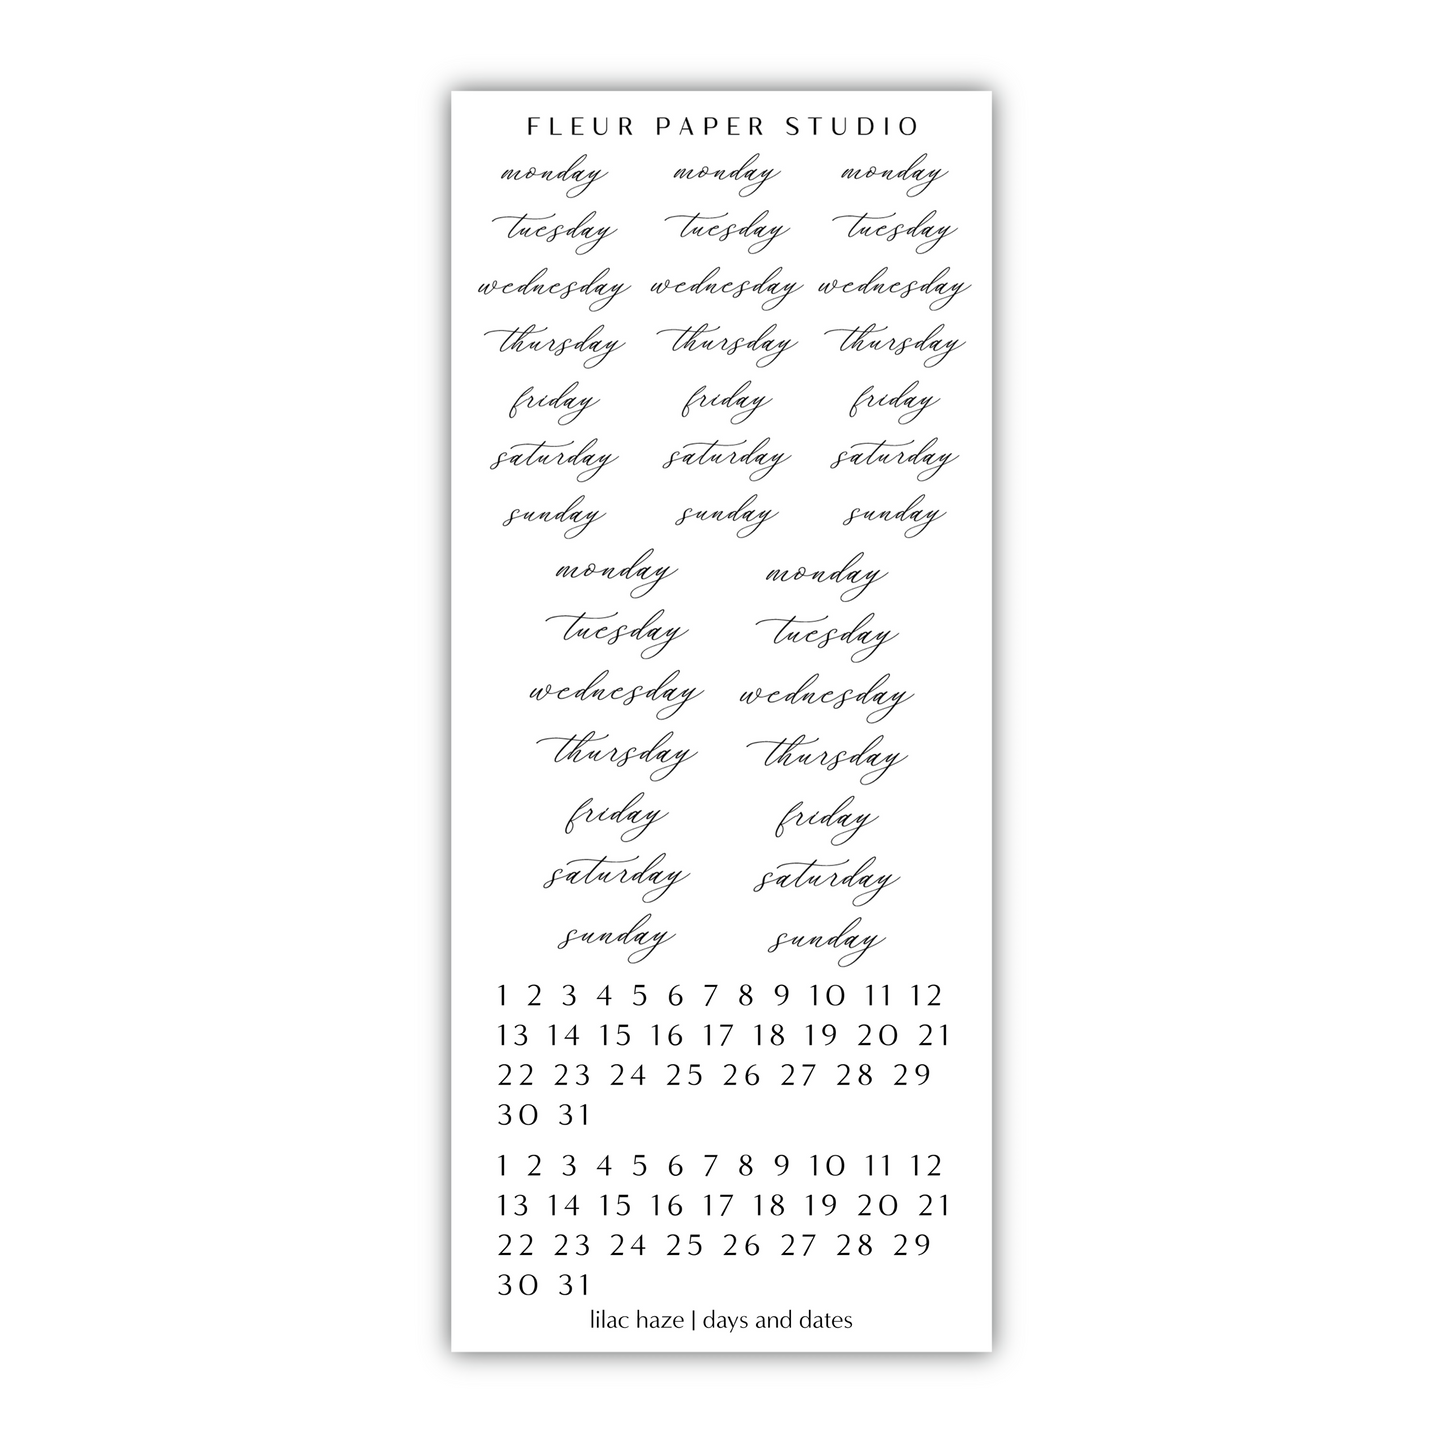 FLEUR PAPER STUDIO
monday monday monday
tuesday tuesday tuesday
wednesday wednesday wednesday
thursday thursday thursday
friday friday friday
saturday saturday saturday
sunday sunday sunday
monday monday
tuesday tuesday
wednesday wednesday
thursday thursday
friday friday
saturday saturday
sunday sunday
1 2 3 4 5 6 7 8 9 10 11 12
13 14 15 16 17 18 19 20 21
22 23 24 25 26 27 28 29
30 31
1 2 3 4 5 6 7 8 9 10 11 12
13 14 15 16 17 18 19 20 21
22 23 24 25 26 27 28 29
30 31
lilac haze | days and dates